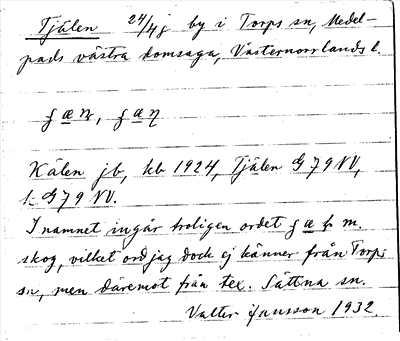 Tjälen 24/4 j by i Torps sn, Medel-
pads västra domsaga, Västernorrlands l.
Kälen jb, kb 1924, Tjälen G 79 NV,
k G 79 NV.
I namnet ingår troligen ordet
skog, vilket ord jag dock ej känner från Torps
sn, men däremot från t ex. Sättna sn.
Valter Jansson 1932.